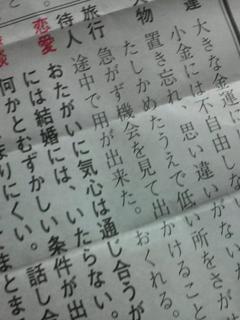 運 大きな金運に
小金には不自由し
思い違いがない
物 置き忘れ、
たしかめたうえで低い所をさが
旅行 急がず機会を見て出かけること
待人 途中で用が出来た。おくれる。
恋愛 おたがいに気心は通じ合うが
には結婚には、いたらない。
何かとむずかしい条件が出
まりにくい。話し合
まとま